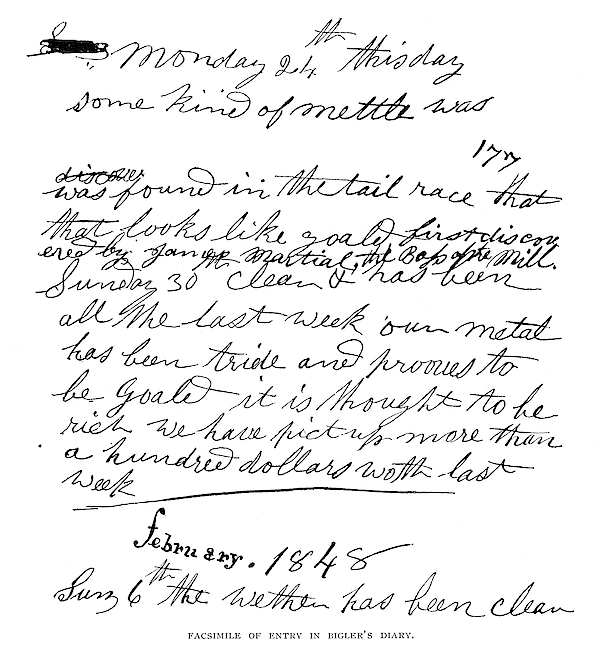 Monday 24th this day
some kind of mettle was
177
discover
was found in the tail race that
that looks like goald first discov
ered by James Martial, the Boss of the Mill.
Sunday 30th clean & has been
all the last week our metal
has been tride and prooves to
be Goald it is thought to be
rich we have pict up more than
a hundred dollars woth last
week
February. 1848
Sun 6th the wether has been clean
FACSIMILE OF ENTRY IN BIGLER'S DIARY.